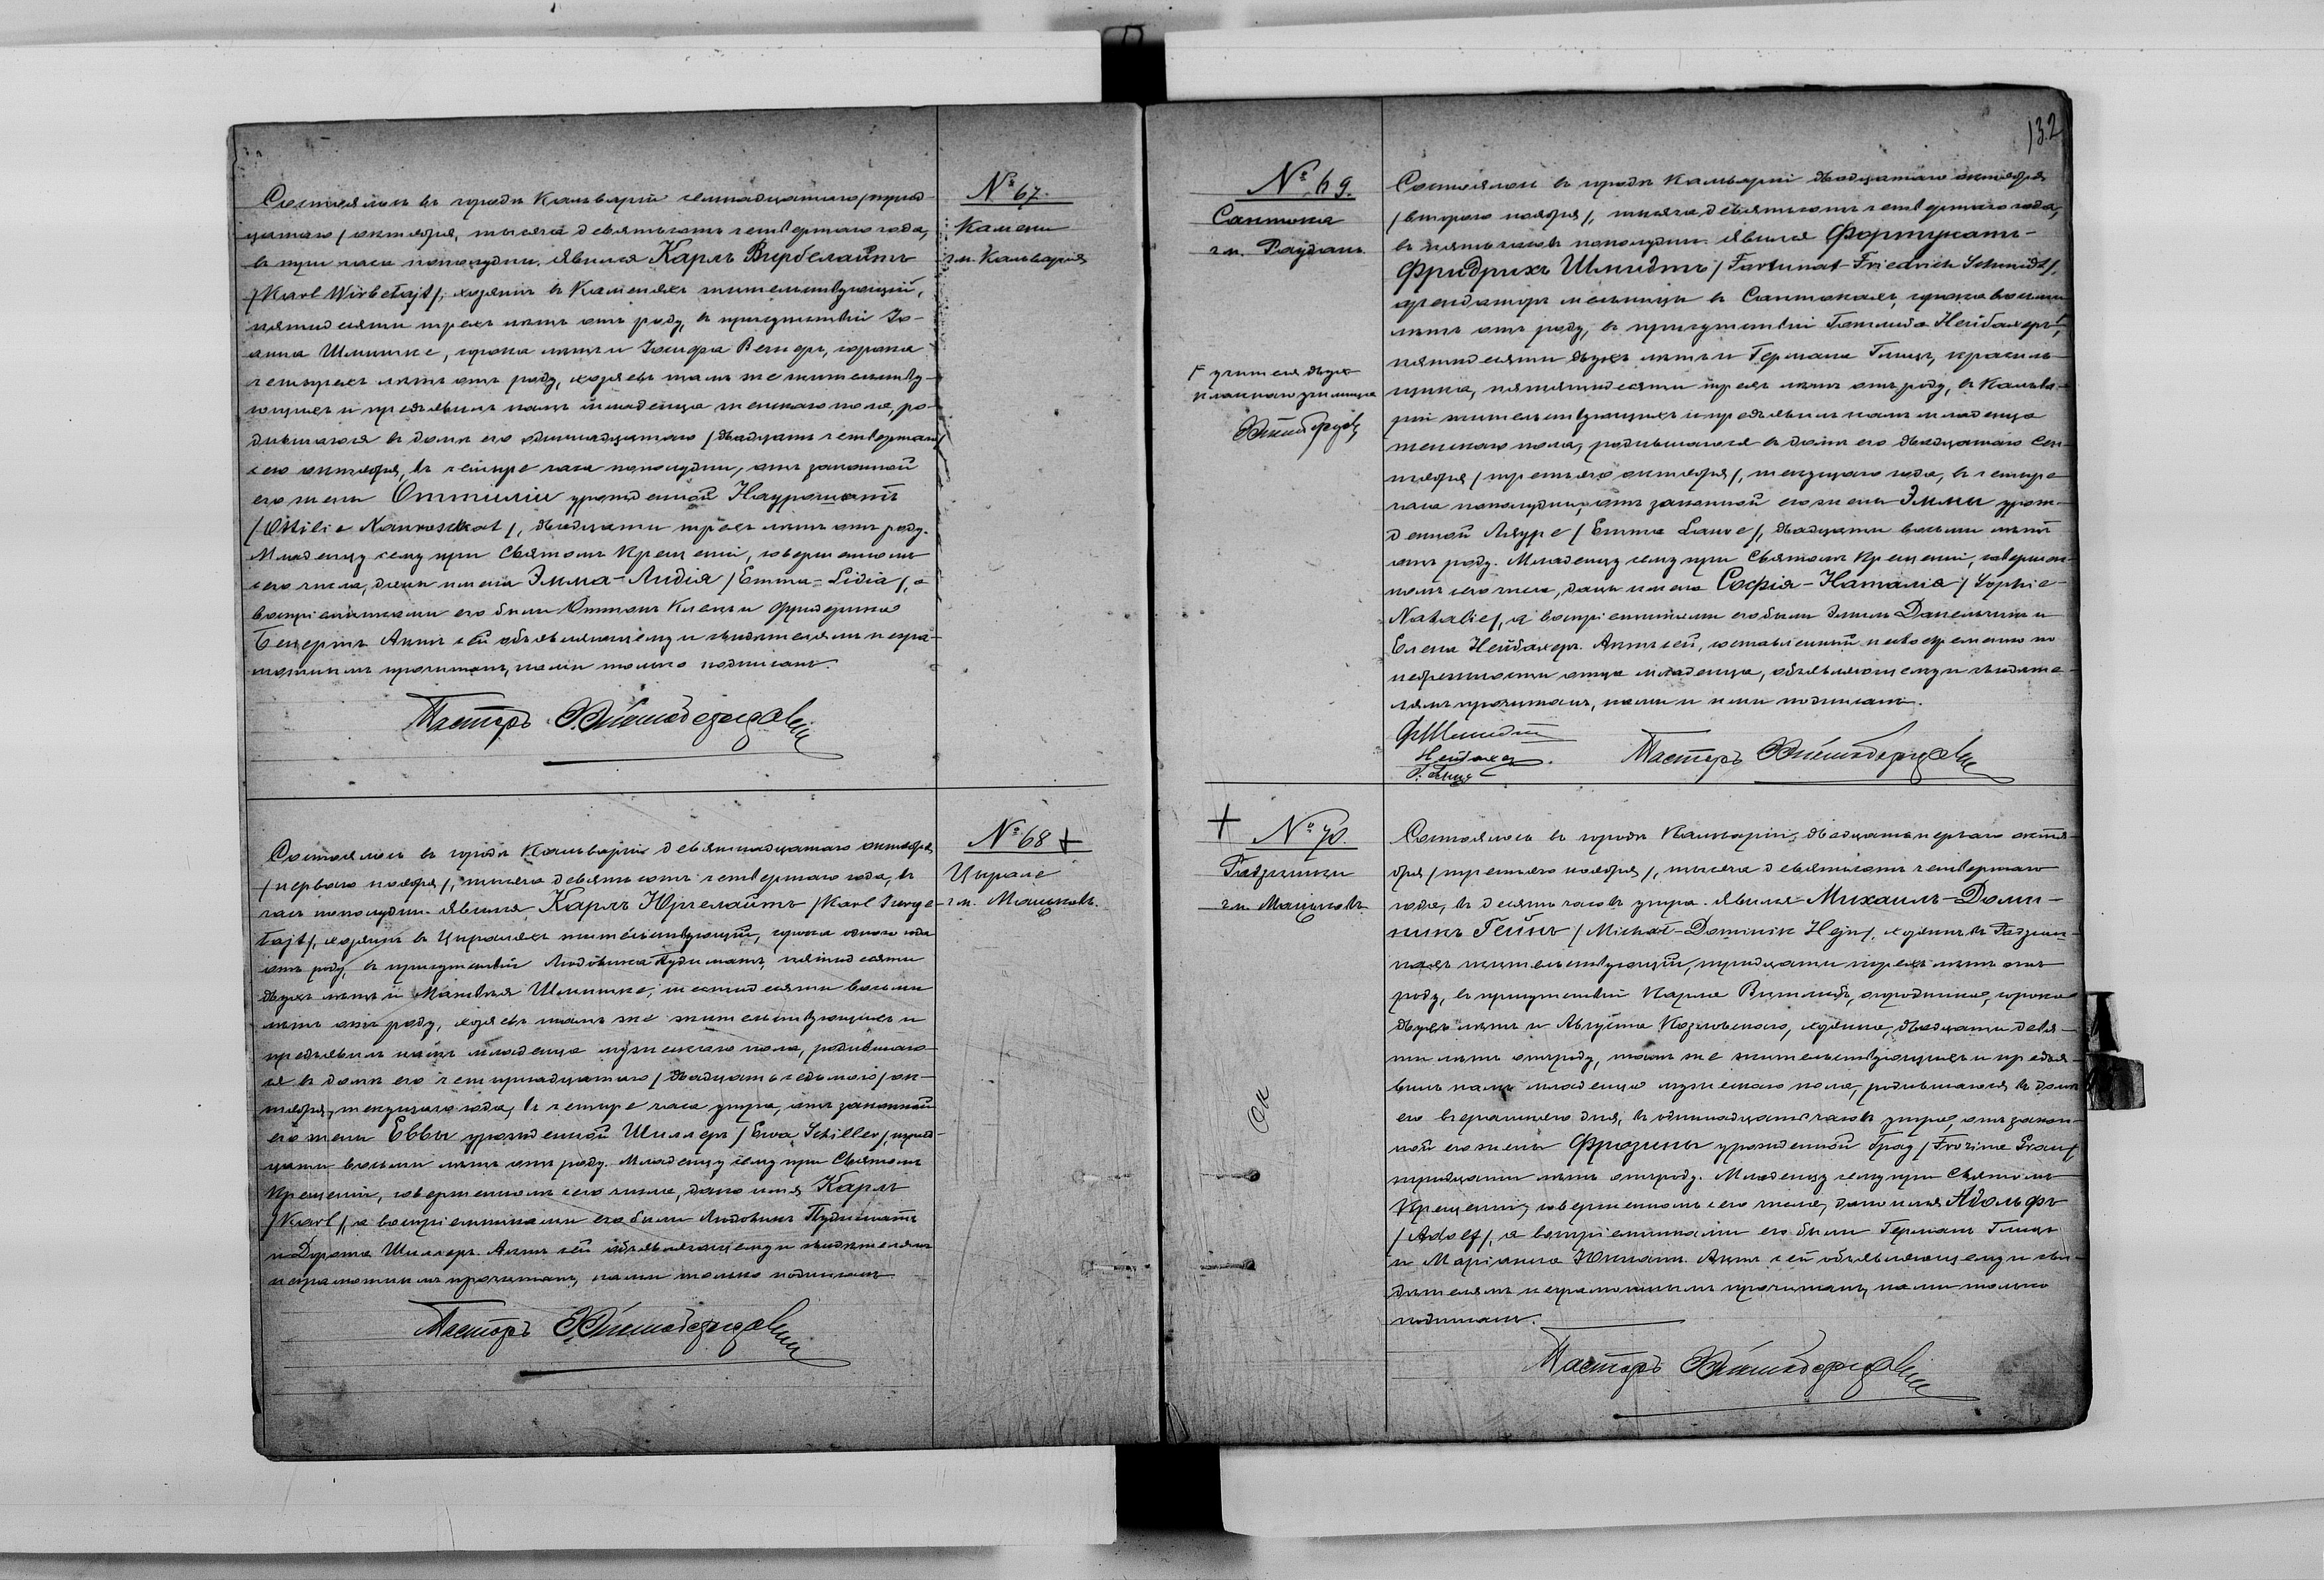 № 67.
Камени
гм. Кальварія
Состоялось въ городѣ Кальваріи семнадцатаго /тридцатаго/ октября, тысяча девятьсотъ четвертаго года,
въ три часа пополудни. Явился Карлъ Вирбелайтъ
/Karl Wirbełajt/, хозяинъ въ Каменяхъ жительствующій,
пятидесяти трехъ лѣтъ отъ роду, въ присутствіи Іо-
анна Шмитке, сорока лѣтъ и Іосифа Венеръ, сорока
четырехъ лѣтъ отъ роду, хозяевъ тамъ же жительству-
ющихъ и предъявилъ намъ младенца женскаго пола, ро-
дившагося въ домѣ его одиннадцатаго /двадцать четвертаго/
сего октября, въ четыре часа пополудни, отъ законной
его жены Оттиліи урожденной Наурошатъ
/Ottilie Nauroschat/, двадцати трехъ лѣтъ отъ роду.
Младенцу сему при Святомъ Крещеніи, совершенномъ
сего числа, даны имена Эмма-Лидія /Emma-Lidia/, а
воспріемниками его были Оттонъ Клеинъ и Фридерика
Бенертъ. Актъ сей объявляющему и свидѣтелямъ негра-
мотнымъ прочитанъ, нами только подписанъ.
Пасторъ
№ 68 +
Цирале
гм. Мацковъ.
Состоялось въ городѣ Кальваріи девятнадцатаго октября
/перваго ноября/, тысяча девятьсотъ четвертаго года, въ
часъ пополудни. Явился Карлъ Юргелайтъ /Karl Jurge-
łajt/, хозяинъ въ Цираляхъ жительствующій, сорока одного года
отъ роду, въ присутствіи Людовика Пудиматъ, пятидесяти
двухъ лѣтъ и Матвѣя Шмитке, шестидесяти восьми
лѣтъ отъ роду, хозяевъ тамъ же жительствующихъ и
предъявилъ намъ младенца мужескаго пола, родившаго-
ся въ домѣ его четырнадцатаго /двадцать седьмого/ ок-
тября, текущаго года, въ четыре часа утра, отъ законной
его жены Еввы урожденной Шиллеръ /Ewa Schiller/, трид-
цати восьми лѣтъ отъ роду. Младенцу сему при Святомъ
Крещеніи, совершенномъ сего числа, дано имя Карлъ
/Karl/, а воспріемниками его были Людовикъ Пудиматъ
и Дорота Шиллеръ. Актъ сей объявляющему и свидѣтелямъ
неграмотнымъ прочитанъ, нами только подписанъ
Пасторъ
132
№ 69.
Сантока
гм. Раудань
+ учителя двух-
класснаго училища
Состоялось въ городѣ Кальваріи двадцатаго октября
/второго ноября/, тысяча девятьсотъ четвертаго года,
въ пять часовъ пополудни. Явился Фортунатъ-
Фридрихъ Шмидтъ /Fortunat-Friedrich Schmidt/,
арендаторъ мельницы въ Сантокахъ, сорока восьми
лѣтъ отъ роду, въ присутствіи Готлиба Нейбахеръ+,
пятидесяти двухъ лѣтъ и Германа Глицъ, красиль-
щика, пятидесяти трехъ лѣтъ отъ роду, въ Кальва-
ріи жительствующихъ и предъявилъ намъ младенца
женскаго пола, родившагося въ домѣ его двадцатаго Сен-
тября /третьяго октября/, текущаго года, въ четыре
часа пополудни, отъ законной его жены Эммы урож-
денной Лауре /Emma Laure/, двадцати восьми лѣтъ
отъ роду. Младенцу сему при Святомъ Крещеніи, совершен-
номъ сего числа, даны имена Софія-Наталія /Sophie-
Natalie/, а воспріемниками его были Эмиль Данельчикъ и
Елена Нейбахеръ. Актъ сей, составленный несвоевременно по
небрежности отца младенца, объявляющему и свидѣте-
лямъ прочитанъ, нами и ими подписанъ.
ФШмидтъ
Нейбахеръ
Г. Глицъ
Пасторъ
+ № 70.
Гавзишки
гм. Мацковъ.
ок
Состоялось въ городѣ Кальваріи, двадцать перваго октя-
бря /третьяго ноября/, тысяча девятьсотъ четвертаго
года, въ десять часовъ утра. Явился Михаилъ-Доми-
никъ Гейнъ /Michał-Dominik Hejn/, хозяинъ въ
жительствующій, тридцати трехъ лѣтъ отъ
роду, въ присутствіи Карла огородника, сорока
двухъ лѣтъ и Августа Козловскаго, хозяина, двадцати девя-
ти лѣтъ отъ роду, тамъ же жительствующихъ и предъя-
вилъ намъ младенца мужескаго пола, родившагося въ домѣ
его вчерашняго дня, въ одиннадцать часовъ утра, отъ закон-
ной его жены Фрозины урожденной Брау /Frozina Brau/
тридцати лѣтъ отъ роду. Младенцу сему при Святомъ
Крещеніи, совершенномъ сего числа, дано имя Адольфъ
/Adolf/, а воспріемниками его были Германъ Глицъ
и Маріанна Юкнатъ. Актъ сей объявляющему и сви-
дѣтелямъ неграмотнымъ прочитанъ, нами только
подписанъ.
Пасторъ